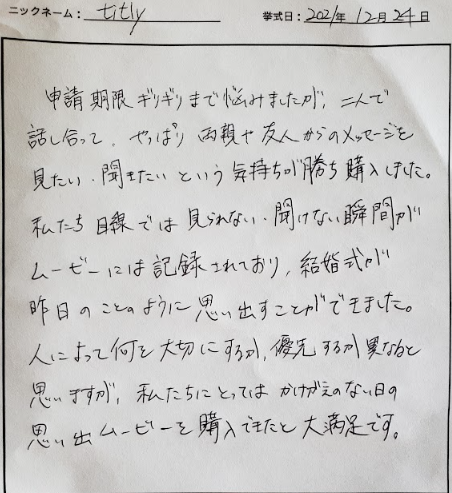 ニックネーム: titly 挙式日: 2021年 12月 24日
申請期限ギリギリまで悩みましたが、二人で
話し合って、やっぱり両親や友人からのメッセージを
見たい・聞きたいという気持ちが勝ち購入しました。
私たち目線では見られない・聞けない瞬間が
ムービーには記録されており、結婚式が
昨日のことのように思い出すことができました。
人によって何を大切にするか、優先するか異なると
思いますが、私たちにとってはかけがえのない日の
思い出ムービーを購入できたと大満足です。